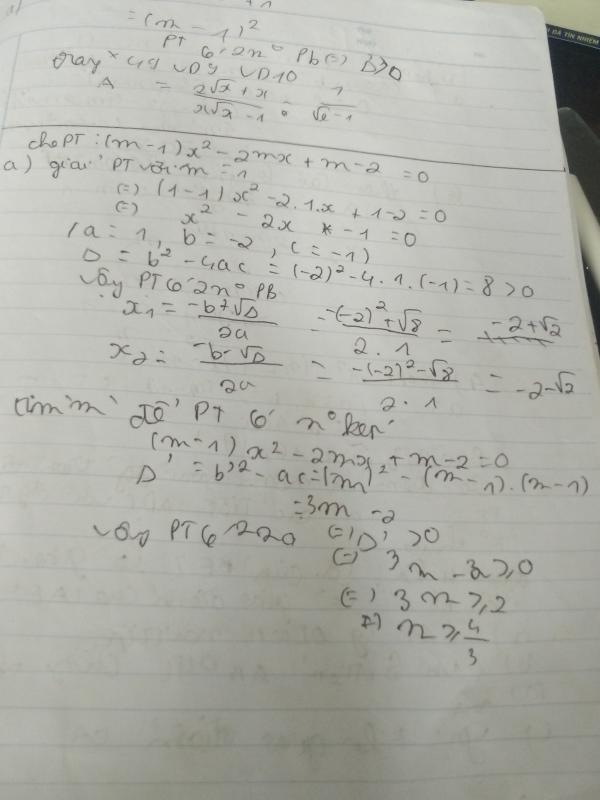 = (m - 1)²
PT có 2 n° Pb (=) >0
A = 2√x + x / x√x - 1 : 1 / √x - 1
cho PT : (m-1)x² - 2mx + m - 2 = 0
a) giải PT với m = 1
(=) (1-1)x² - 2.1.x + 1-2 = 0
(=) x² - 2x - 1 = 0
(a = 1, b = -2, c = -1)
Δ = b² - 4ac = (-2)² - 4.1.(-1) = 8 > 0
Vậy PT có 2 n° PB
x₁ = -b+√Δ / 2a = -(-2)²+√8 / 2.1 = -2+√2
x₂ = -b-√Δ / 2a = -(-2)²-√8 / 2.1 = -2-√2
tìm m để PT có n° kép
(m-1)x² - 2mx + m - 2 = 0
Δ' = b'² - ac = (m)² - (m-1).(m-1)
= 3m - 2
Vậy PT có (=) Δ' > 0
(=) 3m - 2 ≥ 0
(=) 3m ≥ 2
(=) m ≥ 4/3